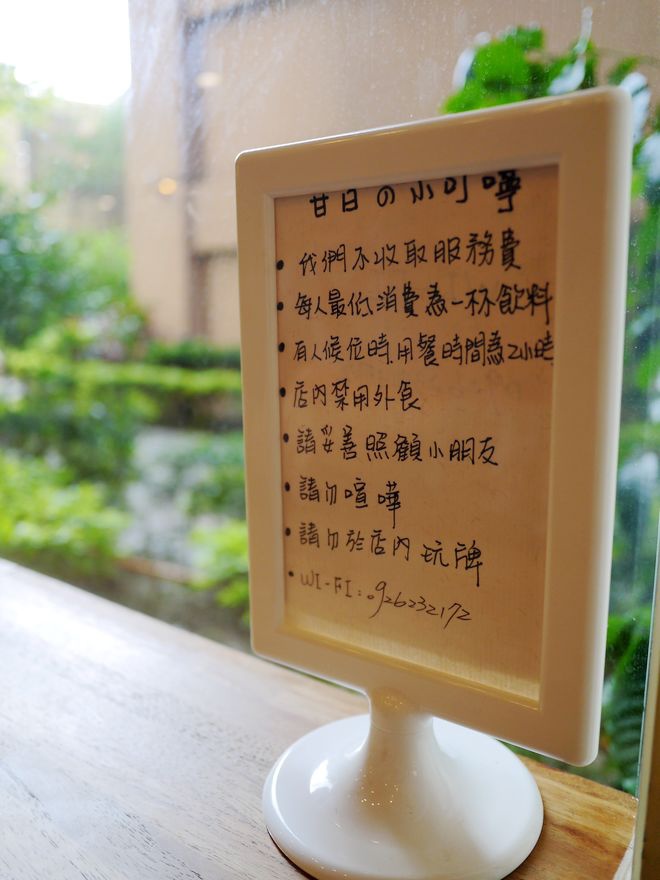 甘日の小叮嚀
• 我們不收取服務費
• 每人最低消費為一杯飲料
• 有人候位時,用餐時間為2小時
• 店內禁用外食
• 請妥善照顧小朋友
• 請勿喧嘩
• 請勿於店內玩牌
• WI-FI:0926232172